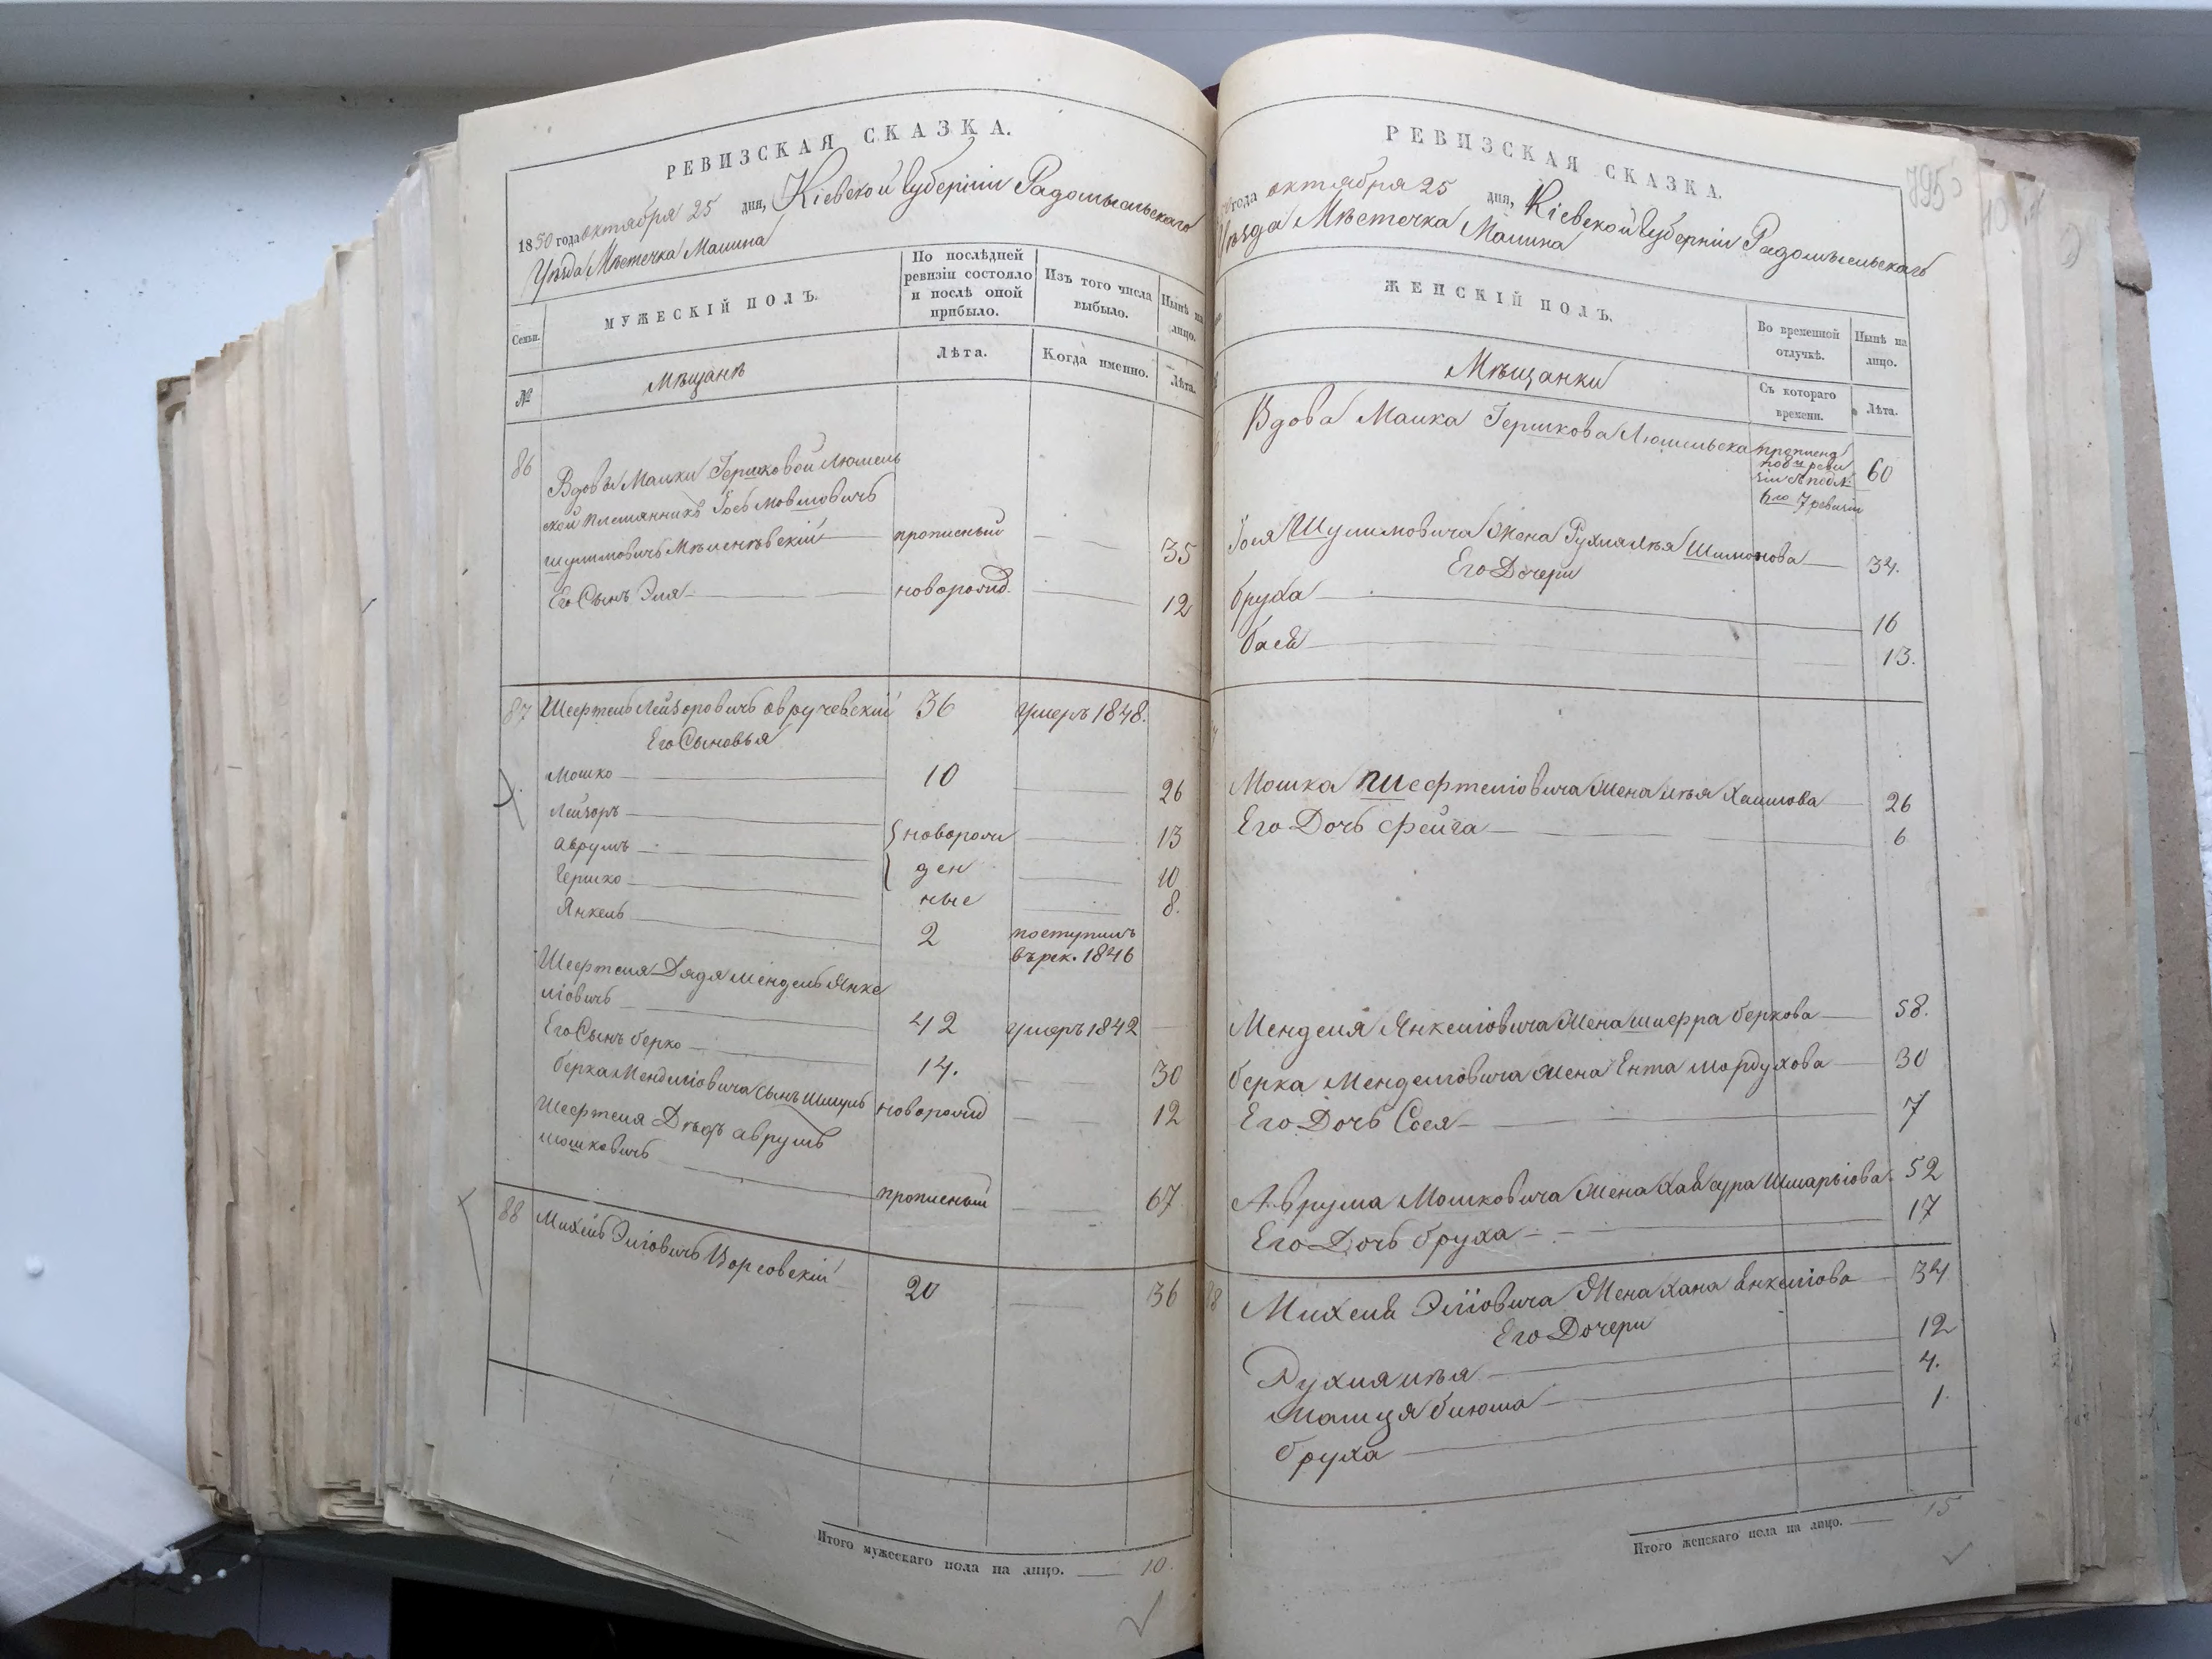 РЕВИЗСКАЯ СКАЗКА.
1850 года октября 25 дня, Кіевской Губерніи Радомысльскаго
Уѣзда Мѣстечка Малина
Семьи.
МУЖЕСКІЙ ПОЛЪ.
По послѣдней
ревизіи состояло
и послѣ оной
прибыло.
Изъ того числа
выбыло.
Нынѣ на
лицо.
№
Мѣщанѣ
Лѣта.
Когда именно.
Лѣта.
86
Вдовы Малки Гершковой Люмель
ской племянникъ Іосъ Мовшовичъ
Шулимовичъ прописный 35
Его Сынъ Эля новорожд. 12
87 Шефтель Лейзоровичъ Овручевскій 36 умеръ 1848.
Его Сыновья
Мошко 10 26
Лейзоръ 13
Аврумъ новорож 10
Гершко ден 8.
ные
Янкель 2 поступилъ
в рек. 1846
Шефтеля Дядя Мендель Янке
ліовичъ 42 умеръ 1842
Его Сынъ Берко 14. 30
Берка Менделіовича сынъ Шмуль новорожд 12
Шефтеля Дѣдъ Аврумъ
Мошковичъ прописный 67
88 Михель Эліовичъ Ворсовскій 20 36
Итого мужескаго пола на лицо. 10.
РЕВИЗСКАЯ СКАЗКА.
795
года октября 25 дня, Кіевской Губерніи Радомысльскаго
Уѣзда Мѣстечка Малина
ЖЕНСКІЙ ПОЛЪ.
Во временной
отлучкѣ.
Нынѣ на
лицо.
Мѣщанки
Съ котораго
времени.
Лѣта.
Вдова Малка Гершкова Люмельска 60
7 ревизіи
Іося Шулимовича Жена Рухля Лѣя Шимонова 34.
Его Дочери
Бруха 16
Бася 13.
Мошка Шефтеліовича Жена Лѣя Хаимова 26
Его Дочь Фейга 6
Менделя Янкеліовича Жена Шифра Беркова 58.
Берка Менделіовича Жена Ента Мордухова 30
Его Дочь Сося 7
Аврума Мошковича Жена Хая Сура Шмарьіова 52
Его Дочь Бруха 17
88
Михеля Эліовича Жена Хана Янкеліова 34.
Его Дочери
Рухля Лѣя 12
Малця Блюма 4.
Бруха 1.
Итого женскаго пола на лицо. 15